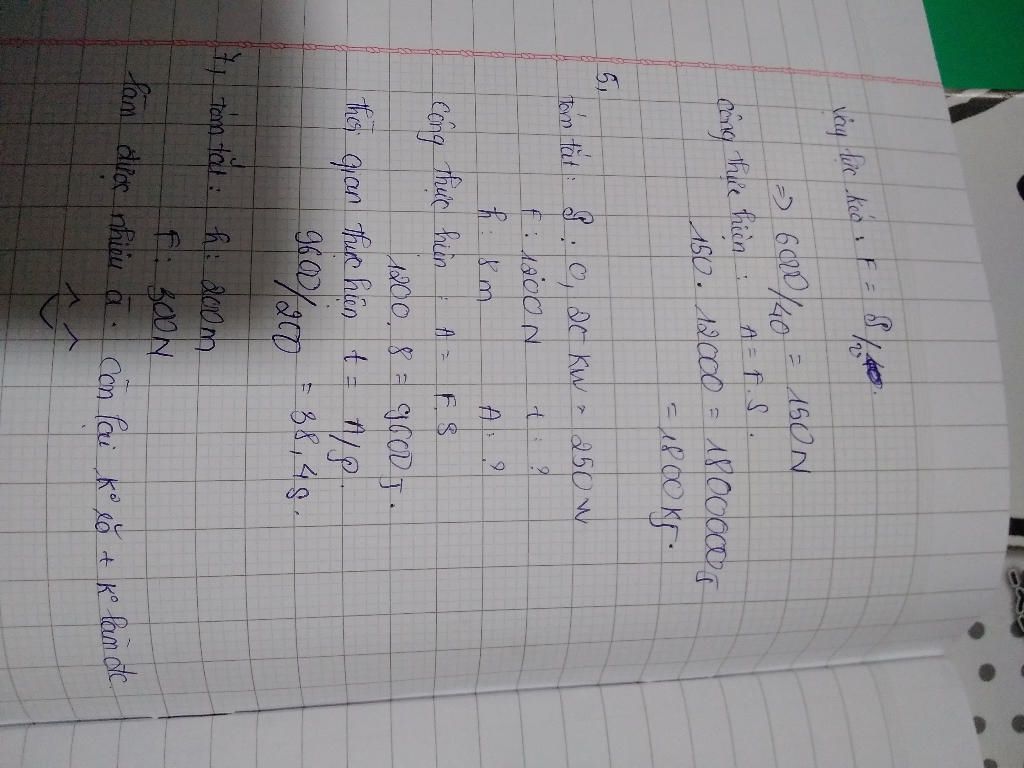 Vậy lực kéo: F = P/v
=> 6000/40 = 150N
công thực hiện: A = F.S.
150. 12000 = 1800000J
= 1800KJ.
5,
tóm tắt: P: 0,25 KW = 250W
F: 1200N t: ?
h: 8m A: ?
công thực hiện: A = F.S
1200. 8 = 9600J.
thời gian thực hiện t = A/P.
9600/250 = 38,4s.
7, tóm tắt: h: 200m
F: 300N
làm được nhiêu à. Còn lại k° + k° làm dc
^ ^